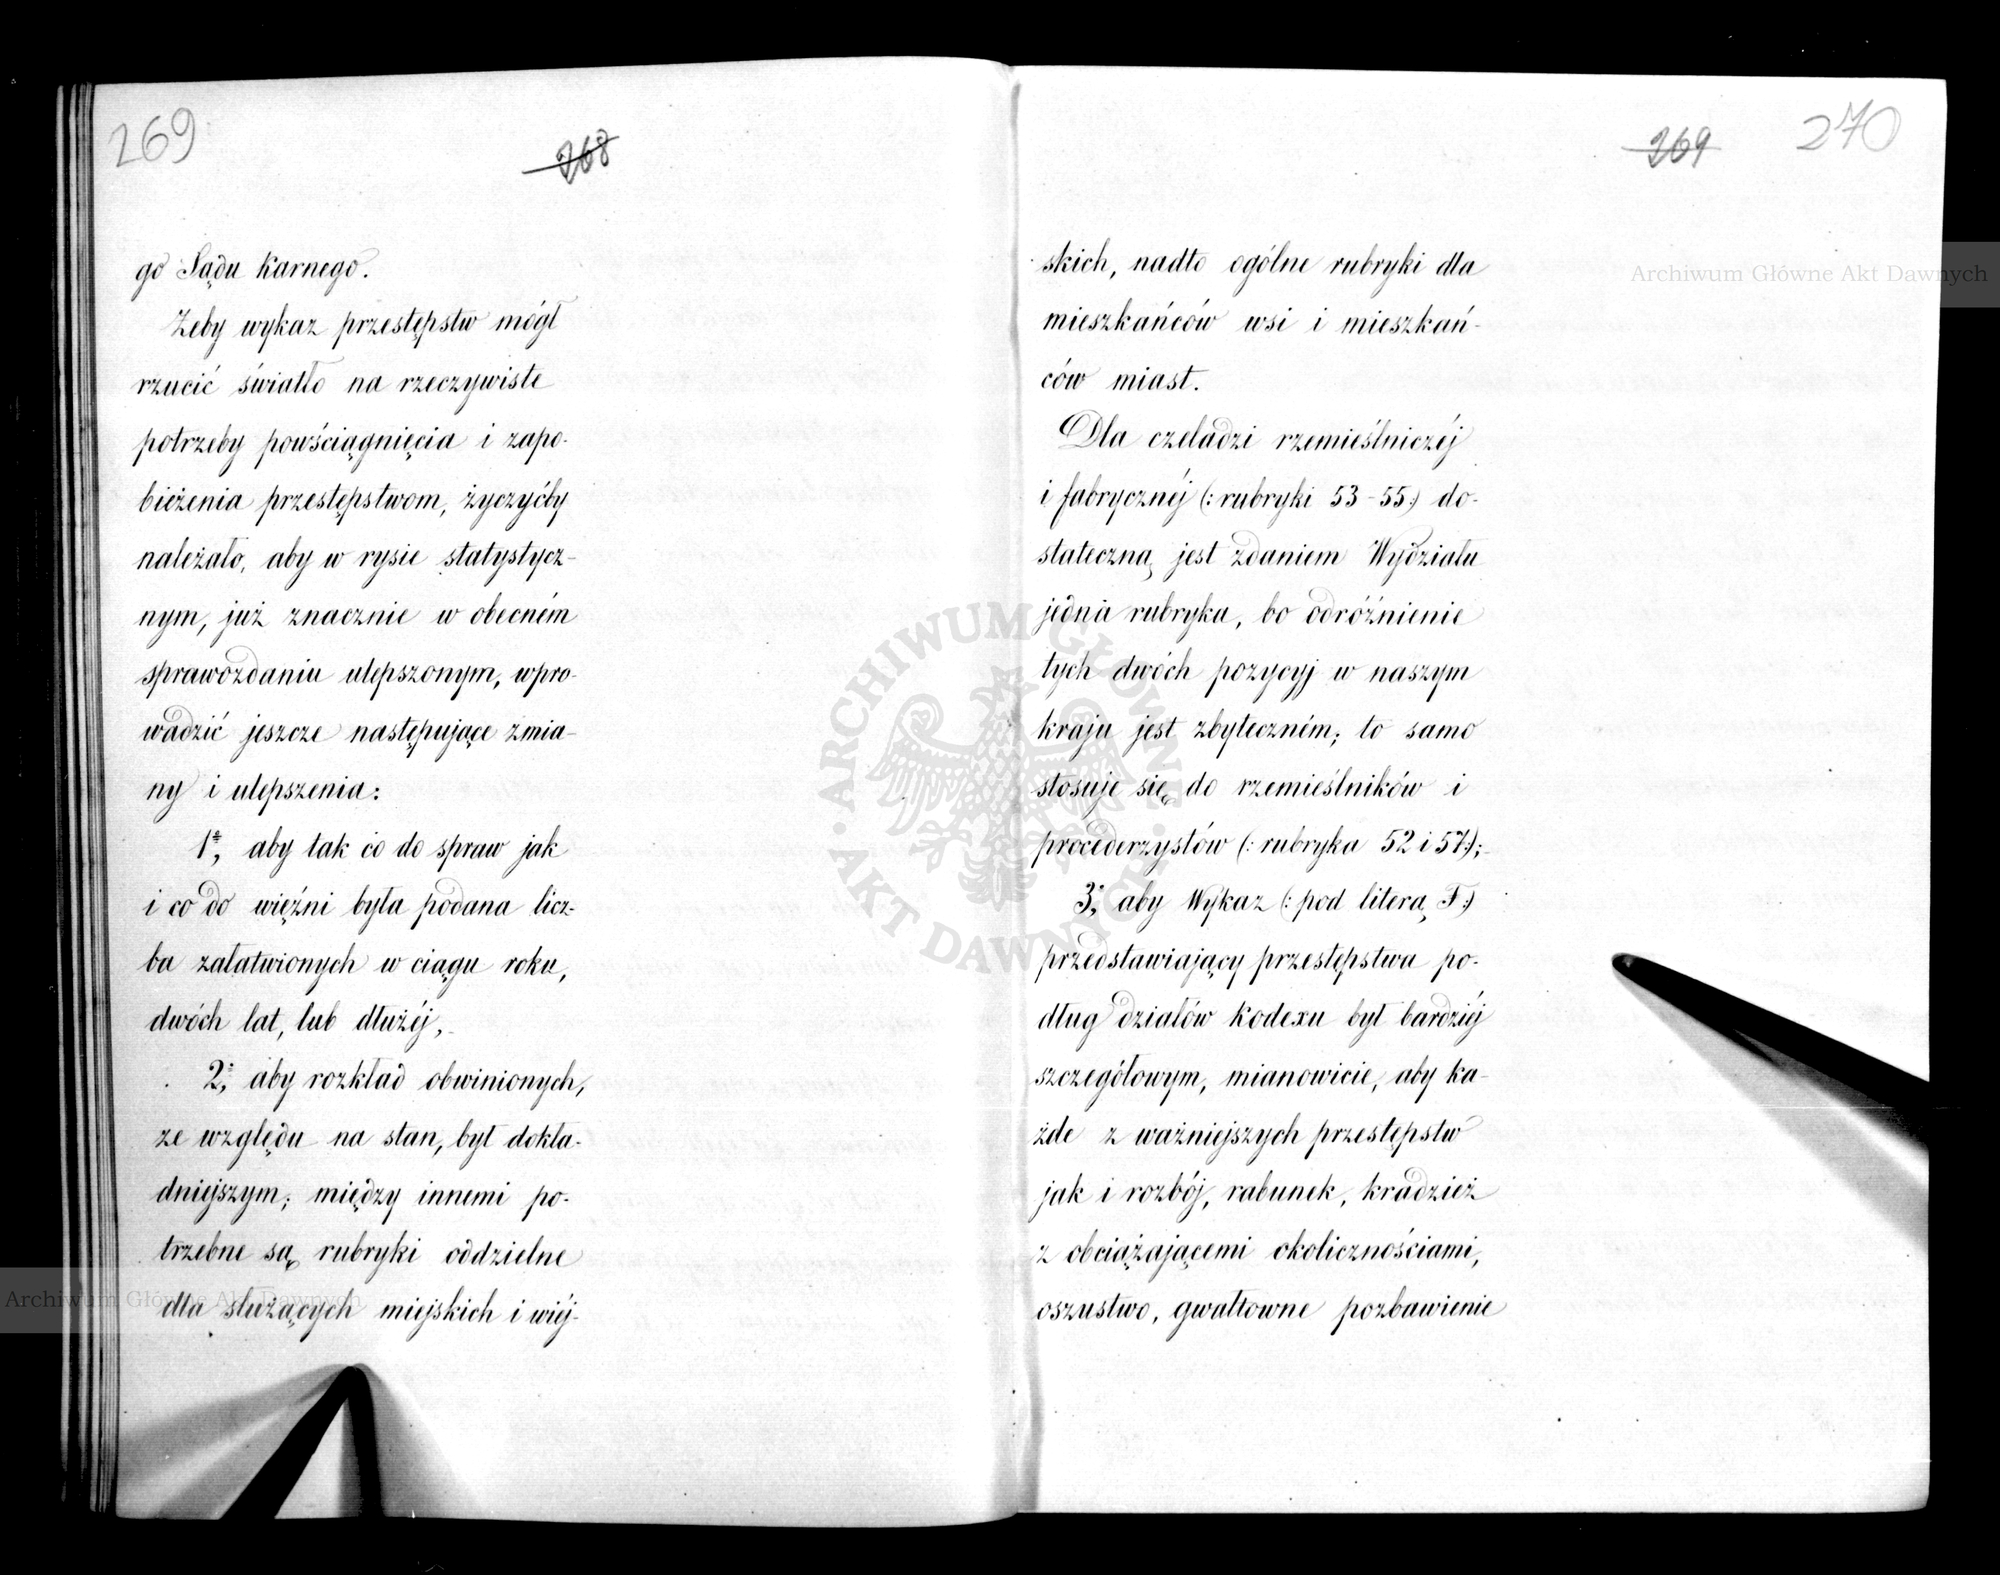 269
268
go Sądu Karnego.
Żeby wykaz przestępstw mógł
rzucić światło na rzeczywiste
potrzeby powściągnięcia i zapo-
bieżenia przestępstwom, życzyćby
należało, aby w rysie statystycz-
nym, już znacznie w obecném
sprawozdaniu ulepszonym, wpro-
wadzić jeszcze następujące zmia-
ny i ulepszenia:
1º, aby tak co do spraw jak
i co do więźni była podana licz-
ba załatwionych w ciągu roku,
dwóch lat, lub dłużéj,
2º, aby rozkład obwinionych,
ze względu na stan, był dokła-
dniejszym; między innemi po-
trzebne są rubryki oddzielne
dla służących miejskich i wiéj-
269
270
skich, nadto ogólne rubryki dla
mieszkańców wsi i mieszkań-
ców miast.
Dla czeladzi rzemieślniczéj
i fabrycznéj (: rubryki 53-55:) do-
stateczną jest zdaniem Wydziału
jedna rubryka, bo odróżnienie
tych dwóch pozycyj w naszym
kraju jest zbyteczném; to samo
stosuje się do rzemieślników i
procederzystów (: rubryka 52 i 57:);
3º, aby Wykaz (: pod literą F:)
przedstawiający przestępstwa po-
dług działów kodexu był bardziéj
szczegółowym, mianowicie, aby ka-
żde z ważniejszych przestępstw
jak i rozbój, rabunek, kradzież
z obciążającemi okolicznościami,
oszustwo, gwałtowne pozbawienie
Archiwum Główne Akt Dawnych
Archiwum Główne Akt Dawnych
ARCHIWUM GŁÓWNE · AKT DAWNYCH ·